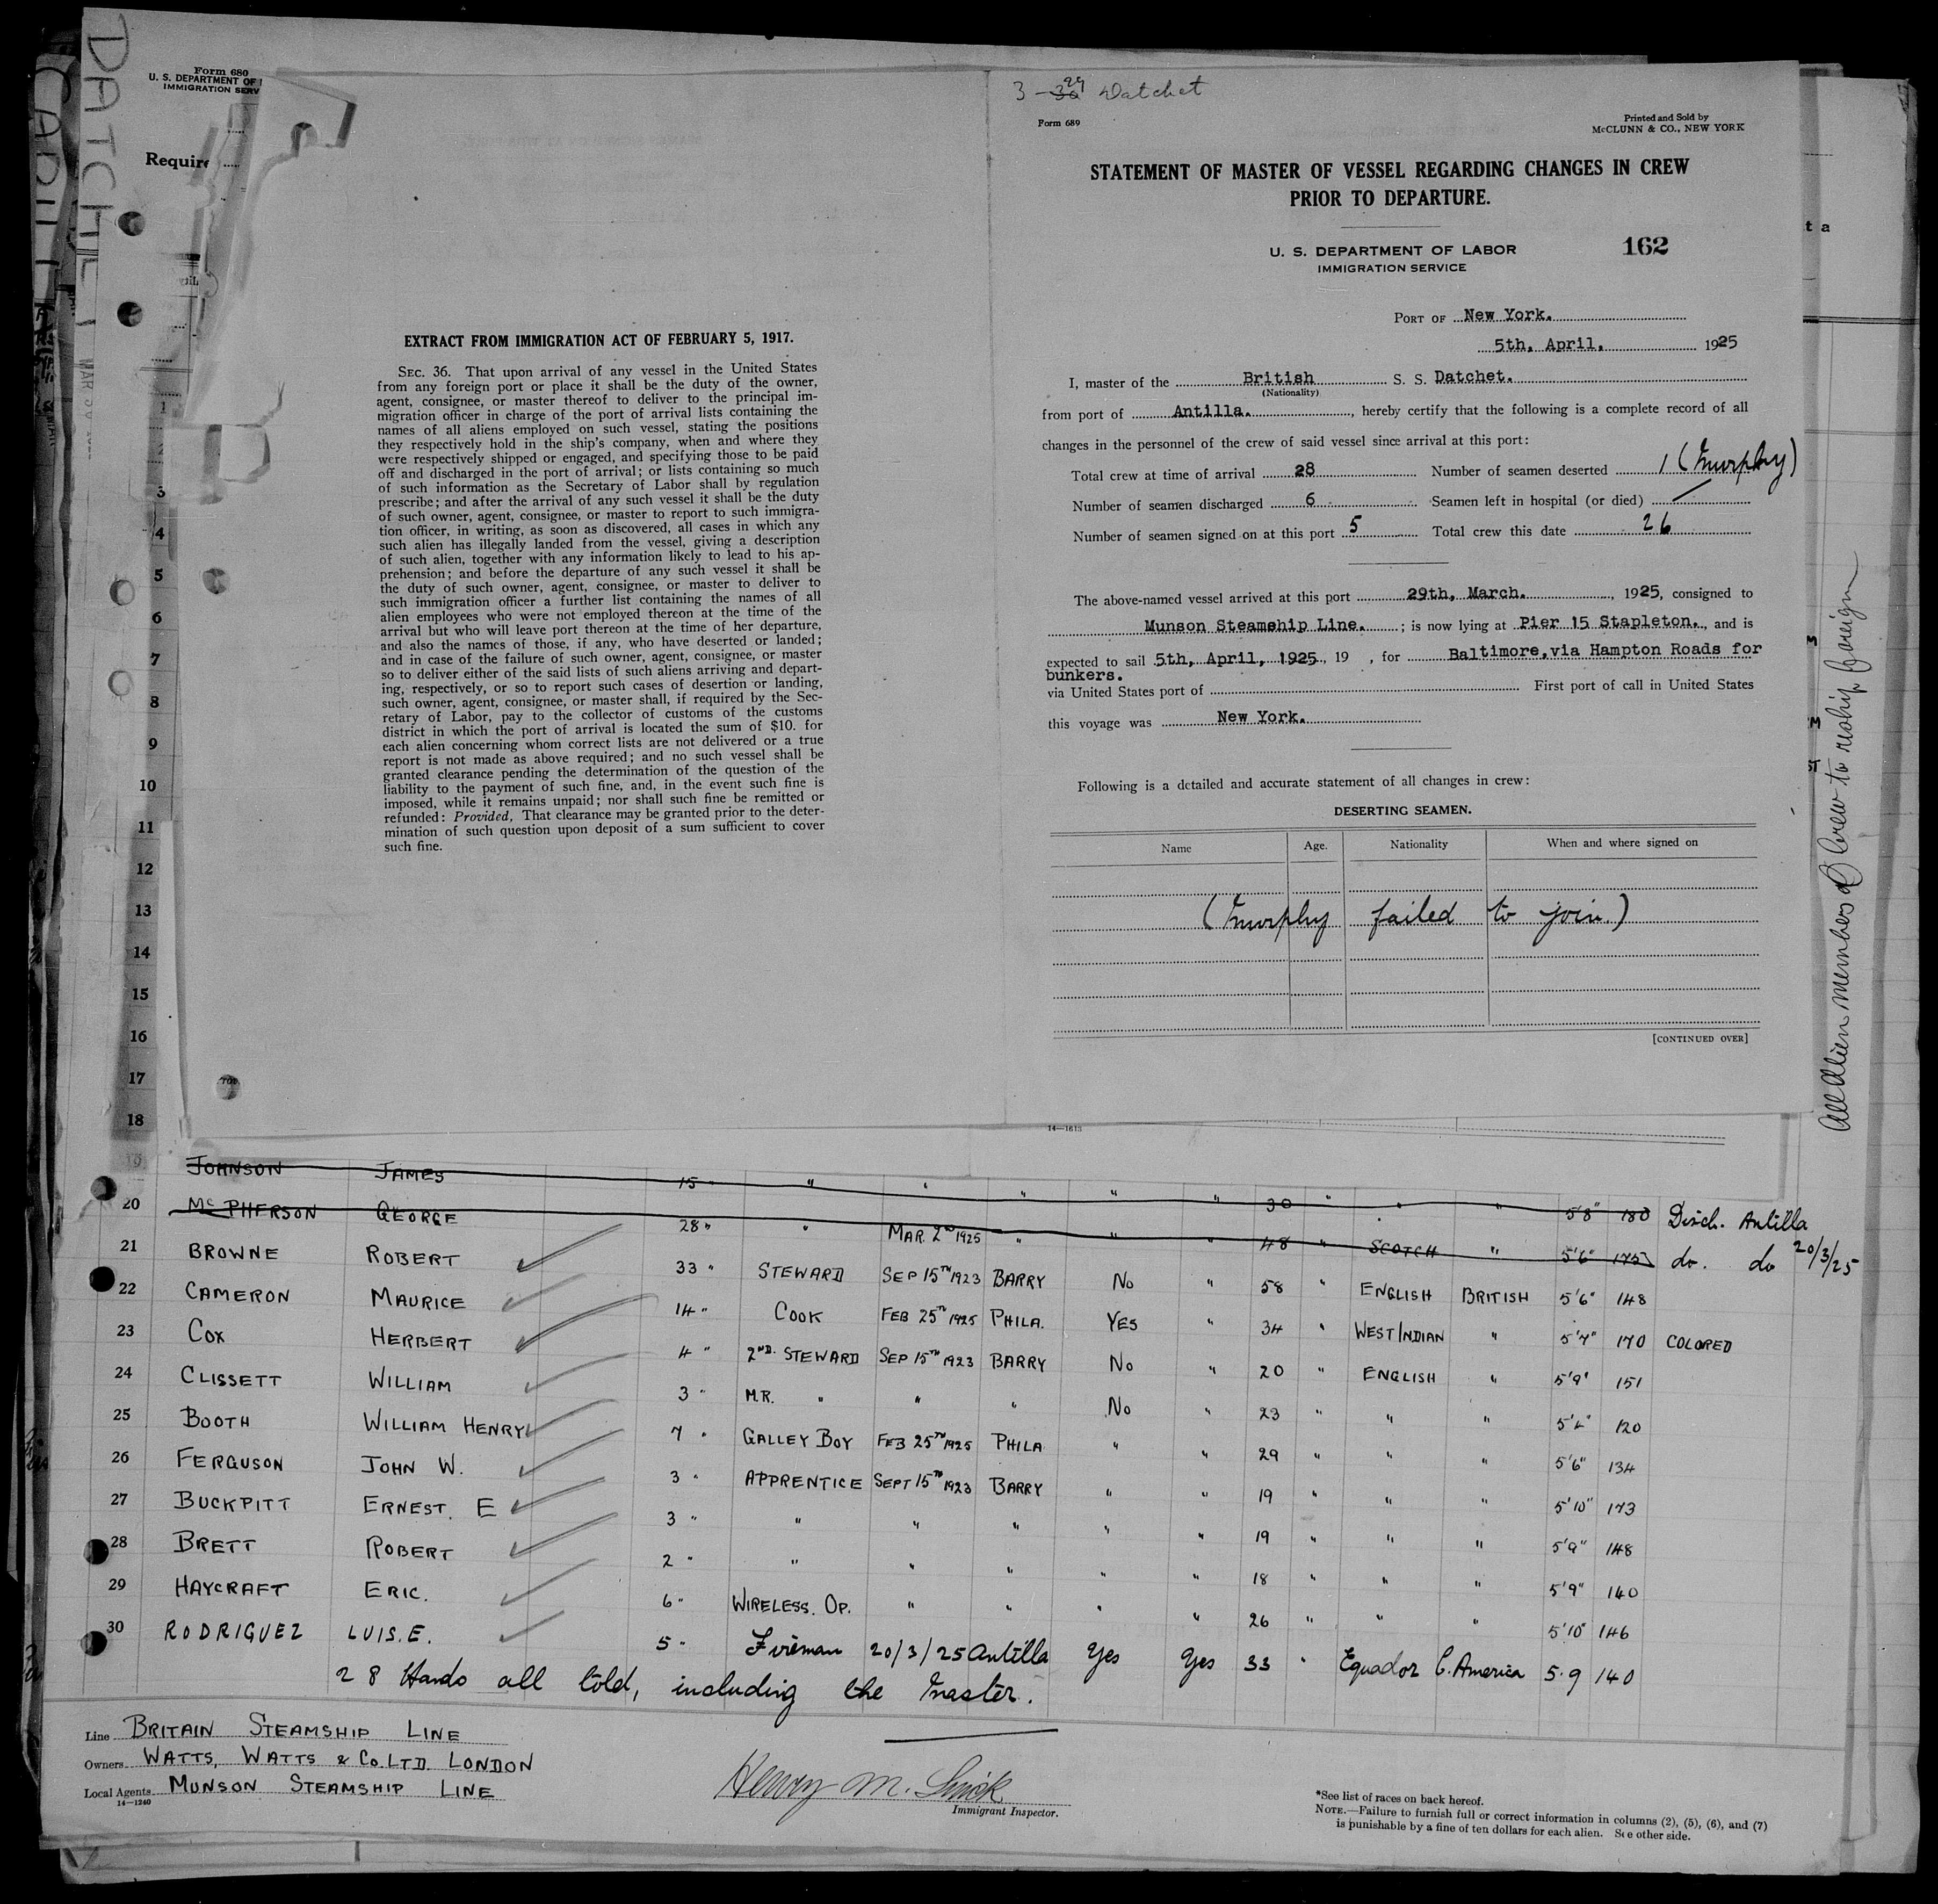 DATCHET
MAR 30
Form 680
U. S. DEPARTMENT OF
IMMIGRATION SERV
Require
EXTRACT FROM IMMIGRATION ACT OF FEBRUARY 5, 1917.
SEC. 36. That upon arrival of any vessel in the United States
from any foreign port or place it shall be the duty of the owner,
agent, consignee, or master thereof to deliver to the principal im-
migration officer in charge of the port of arrival lists containing the
names of all aliens employed on such vessel, stating the positions
they respectively hold in the ship's company, when and where they
were respectively shipped or engaged, and specifying those to be paid
off and discharged in the port of arrival; or lists containing so much
of such information as the Secretary of Labor shall by regulation
prescribe; and after the arrival of any such vessel it shall be the duty
of such owner, agent, consignee, or master to report to such immigra-
tion officer, in writing, as soon as discovered, all cases in which any
such alien has illegally landed from the vessel, giving a description
of such alien, together with any information likely to lead to his ap-
prehension; and before the departure of any such vessel it shall be
the duty of such owner, agent, consignee, or master to deliver to
such immigration officer a further list containing the names of all
alien employees who were not employed thereon at the time of the
arrival but who will leave port thereon at the time of her departure,
and also the names of those, if any, who have deserted or landed;
and in case of the failure of such owner, agent, consignee, or master
so to deliver either of the said lists of such aliens arriving and depart-
ing, respectively, or so to report such cases of desertion or landing,
such owner, agent, consignee, or master shall, if required by the Sec-
retary of Labor, pay to the collector of customs of the customs
district in which the port of arrival is located the sum of $10. for
each alien concerning whom correct lists are not delivered or a true
report is not made as above required; and no such vessel shall be
granted clearance pending the determination of the question of the
liability to the payment of such fine, and, in the event such fine is
imposed, while it remains unpaid; nor shall such fine be remitted or
refunded: Provided, That clearance may be granted prior to the deter-
mination of such question upon deposit of a sum sufficient to cover
such fine.
3 - 30 29 Datchet
Form 689
Printed and Sold by
McCLUNN & CO., NEW YORK
STATEMENT OF MASTER OF VESSEL REGARDING CHANGES IN CREW
PRIOR TO DEPARTURE.
U. S. DEPARTMENT OF LABOR
IMMIGRATION SERVICE
162
PORT OF New York.
5th, April, 1925
I, master of the British S. S. Datchet.
(Nationality)
from port of Antilla., hereby certify that the following is a complete record of all
changes in the personnel of the crew of said vessel since arrival at this port:
Total crew at time of arrival 28 Number of seamen deserted 1 (Murphy)
Number of seamen discharged 6 Seamen left in hospital (or died) /
Number of seamen signed on at this port 5 Total crew this date 26
The above-named vessel arrived at this port 29th, March., 1925, consigned to
Munson Steamship Line. ; is now lying at Pier 15 Stapleton., and is
expected to sail 5th, April, 1925., 19 , for Baltimore,via Hampton Roads for
bunkers.
via United States port of First port of call in United States
this voyage was New York.
Following is a detailed and accurate statement of all changes in crew:
DESERTING SEAMEN.
Name Age. Nationality When and where signed on
(Murphy failed to join.)
[CONTINUED OVER]
All Alien members of Crew to reship foreign
1
3
4
5
6
7
8
9
10
11
12
13
14
15
16
17
18
14—1613
19 JOHNSON JAMES 15 " " " " " " 30 " " " 5'8" 180 Disch. Antilla
20 McPHERSON GEORGE 28 " " MAR. 2ND 1925 " " " 48 " SCOTCH " 5'6" 175 do. do 20/3/25
21 BROWNE ROBERT 33 " STEWARD SEP 15TH 1923 BARRY No " 58 " ENGLISH BRITISH 5'6" 148
22 CAMERON MAURICE 14 " COOK FEB 25TH 1925 PHILA. YES " 34 " WEST INDIAN " 5'7" 170 COLORED
23 COX HERBERT 4 " 2ND. STEWARD SEP 15TH 1923 BARRY No " 20 " ENGLISH " 5'9" 151
24 CLISSETT WILLIAM 3 " M.R. " " " No " 23 " " " 5'2" 120
25 BOOTH WILLIAM HENRY 7 " GALLEY BOY FEB 25TH 1925 PHILA " " 29 " " " 5'6" 134
26 FERGUSON JOHN W. 3 " APPRENTICE SEPT 15TH 1923 BARRY " " 19 " " " 5'10" 173
27 BUCKPITT ERNEST. E 3 " " " " " " 19 " " " 5'9" 148
28 BRETT ROBERT 2 " " " " " " 18 " " " 5'9" 140
29 HAYCRAFT ERIC. 6 " WIRELESS. OP. " " " " 26 " " " 5'10" 146
30 RODRIGUEZ LUIS. E. 5 " Fireman 20/3/25 Antilla Yes Yes 33 " Equador C. America 5.9 140
28 Hands all told, including the Master.
Line BRITAIN STEAMSHIP LINE
Owners WATTS, WATTS & Co. LTD. LONDON
Local Agents MUNSON STEAMSHIP LINE
14—1240
Henry M.
Immigrant Inspector.
*See list of races on back hereof.
NOTE.—Failure to furnish full or correct information in columns (2), (5), (6), and (7)
is punishable by a fine of ten dollars for each alien. See other side.